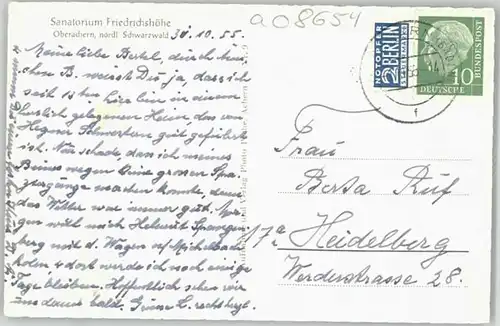 Sanatorium Friedrichshöhe
Oberachern, nördl. Schwarzwald
30.10.55.
a08654
Meine liebe Bertel, durch
chen B. weisst Du ja dass ich
seit 13 ten hier bin in einem
herrlich gelegenen Heim, das von
Hegner Schwestern gut geführt
ist. Nur schade, dass ich meines
Beines wegen keine grossen Spa-
ziergänge machen konnte, denn
das Wetter war immer gut. Mor-
gen will mich Helmut Spangen-
berg mit d. Wagen
holen & dort werde ich noch einige
Tage bleiben. Hoffentlich sehen wir
uns dann bald. Grüsse
NOTOPFER
2 BERLIN
STEUERMARKE
DEUTSCHE
BUNDESPOST
10
f
Frau
Berta Ruf
17a Heidelberg
Werderstrasse 28.